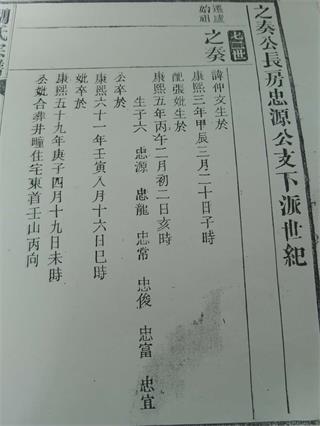 之奏公長房忠源公支下派世紀
遷虛
始祖
七二世
之奏
諱仲文生於
康熙三年甲辰三月二十日子時
配張妣生於
康熙五年丙午二月初二日亥時
生子六 忠源 忠龍 忠常 忠俊 忠富 忠宜
公卒於
康熙六十一年壬寅八月十六日巳時
妣卒於
康熙五十九年庚子四月十九日未時
公妣合葬井疃住宅東首壬山丙向